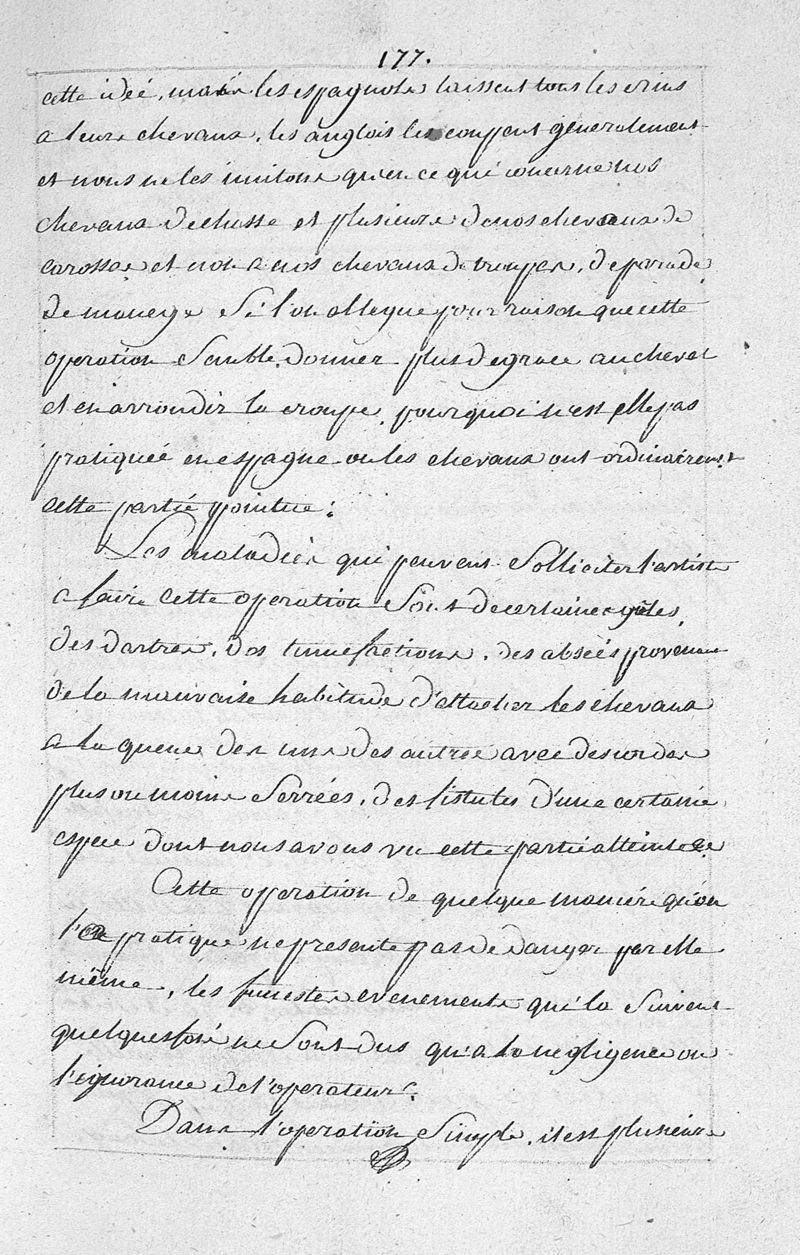 177.
cette idée, mais les espagnols laissent tous les crins
a leurs chevaux, les anglois les coupent généralement
et nous ne les imitons qu'en ce qui concerne nos
chevaux de chasse et plusieurs de nos chevaux de
carosses et non a nos chevaux de troupes, de parade
de manege Si l'on allegue pour raison que cette
operation Semble donner plus de grace au cheval
et en arrondir la croupe, pourquoi n'est elle pas
pratiquée en espagne ou les chevaux ont ordinairement
cette partie pointue;
Les maladies qui peuvent Solliciter l'artiste
a faire cette operation Sont de certaines gâles,
des dartres, des tumefactions, des abseés provenant
de la mauvaise habitude d'attacher les chevaux
a la queue des uns des autres avec des cordes
plus ou moins Serrées, des fistules d'une certaine
espece dont nous avons vu cette partie atteinte
Cette operation de quelque maniére qu'on
la pratique ne presente pas de danger par elle
même, les funestes evenements qui la Suivent
quelquesfois ne Sont dus qu'a la negligence ou
l'ignorance de l'operateur.
Dans l'operation Simple, il est plusieurs